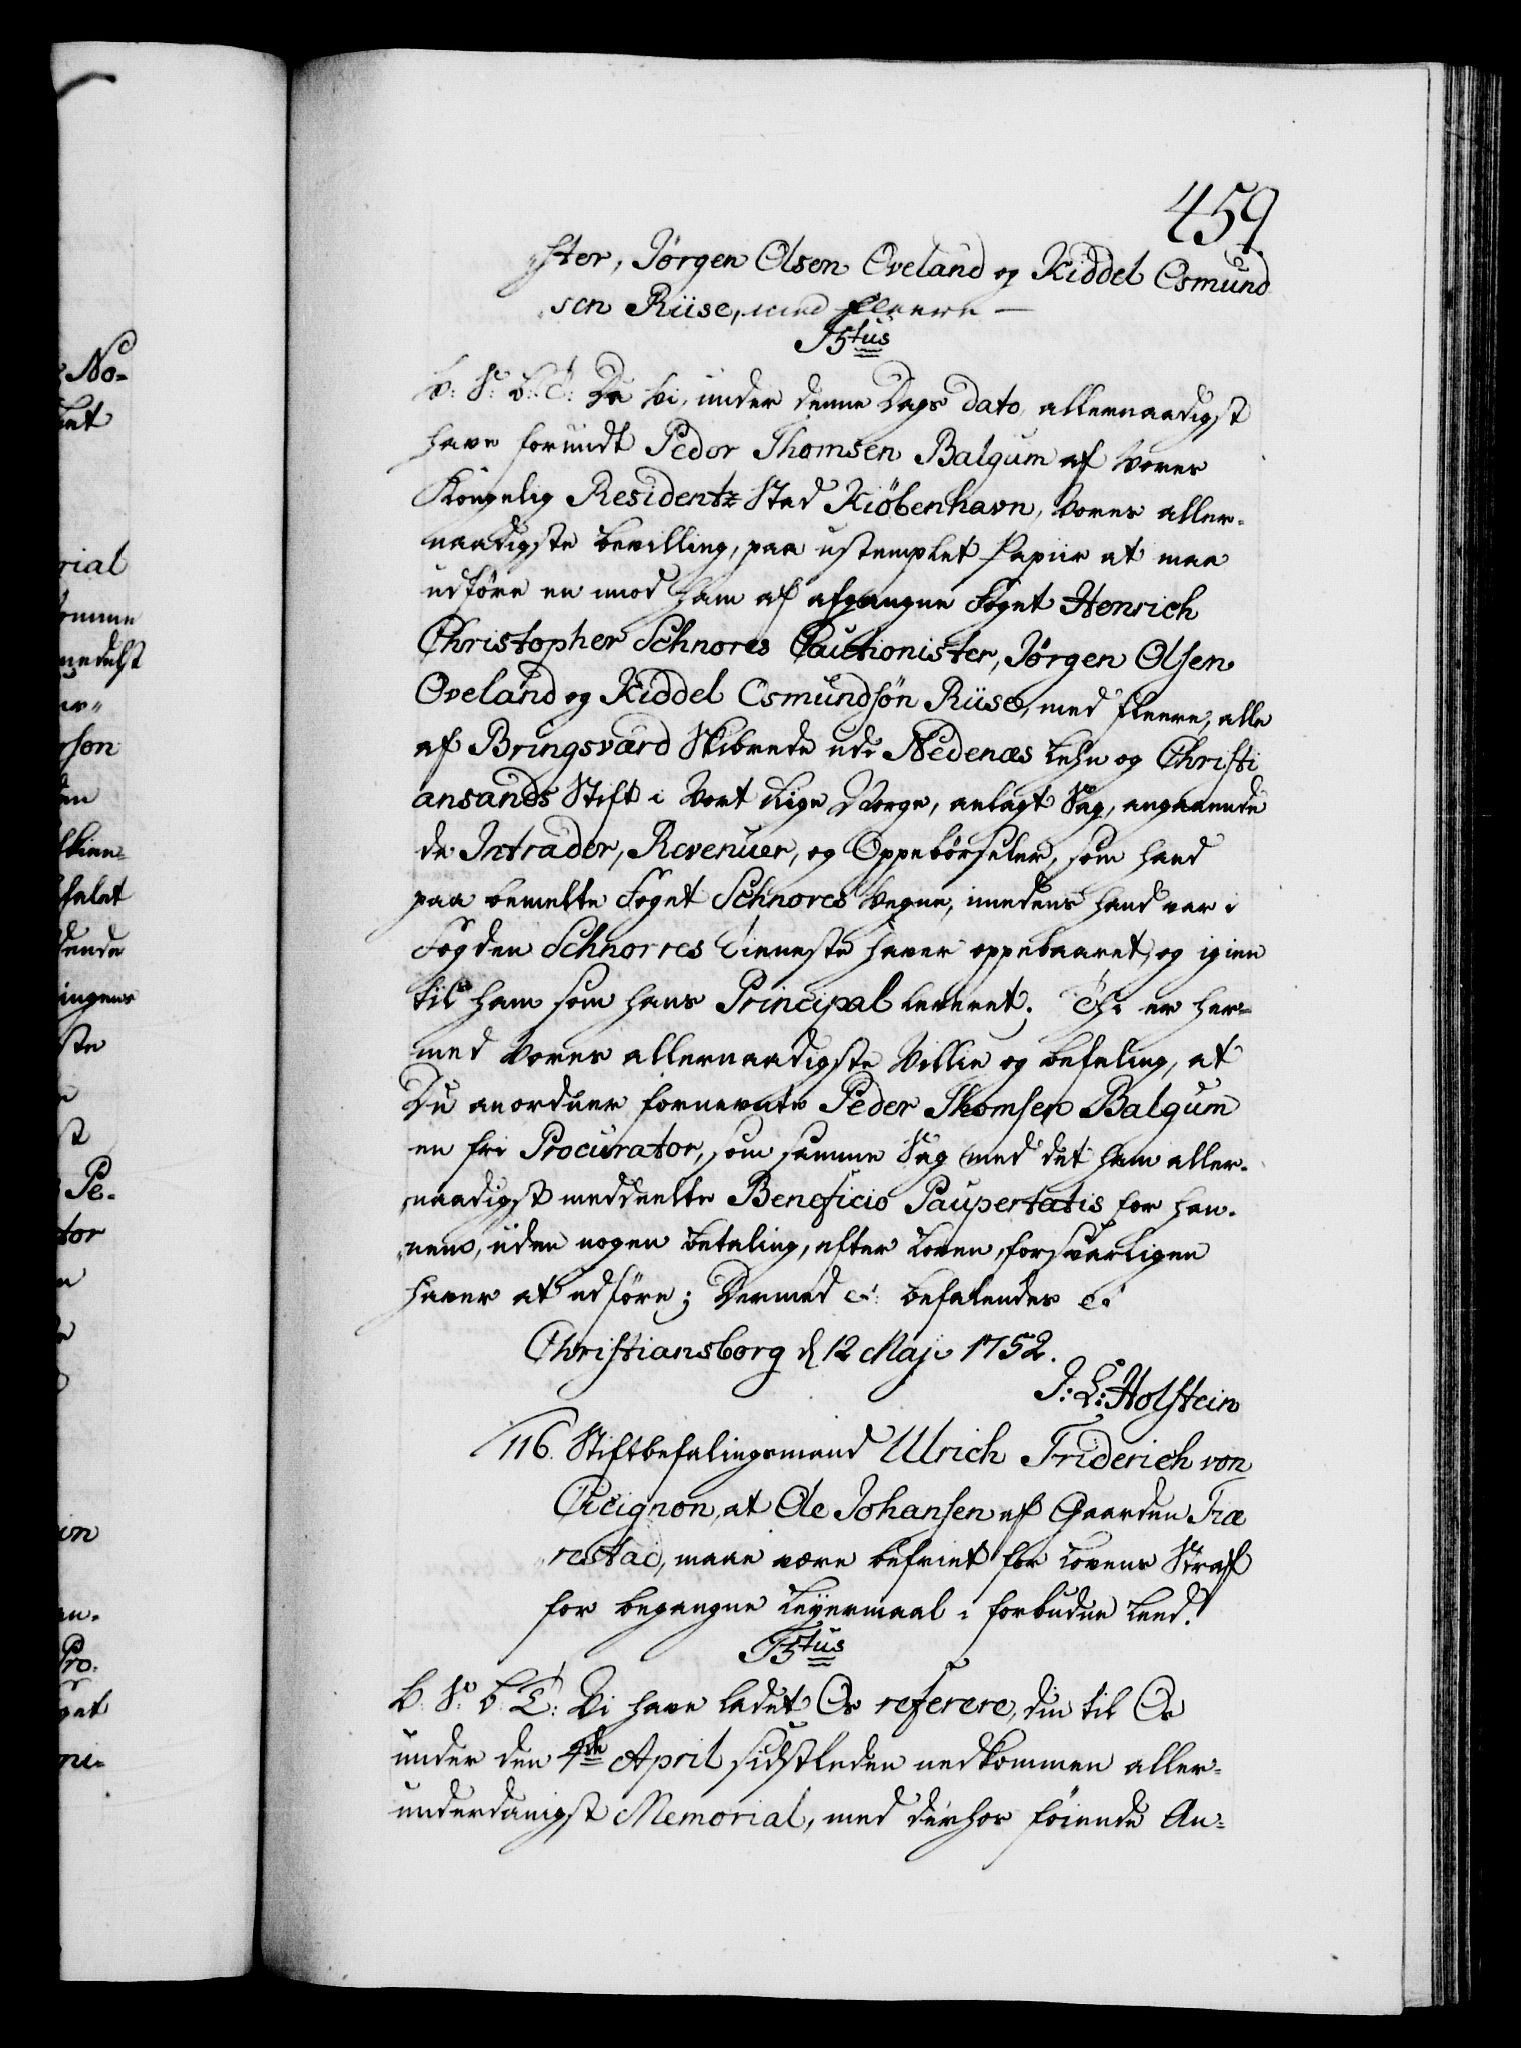 459
ster, Jørgen Olsen Oveland og Kiddel Osmund
sen Riise, med fleere —
Tus
V: S: B: T: Da Vi, under denne Dags dato, allernaadigst
have forundt Peder Thomsen Balgum af Vores
Kongelig Residentz Stad Kiöbenhavn, Vores aller-
naadigste bevilling, paa ustemplet Papiir at maa
udføre en imod ham af afgangne Foget Henrich
Christopher Schnores Cautionister, Jørgen Olsen
Oveland og Kiddel Osmundsøn Riise, med fleere, alle
af Bringsværd Skibrede udi Nedenæs Lehn og Christi
ansands Stift i Vort Rige Norge, anlagt Sag, angaaende
de Intrader, Revenuer, og Oppebørseler, som hand
paa bemelte Foget Schnores Vegne, imedens hand var i
Fogden Schnorres Tieneste haver oppebaaret, og igien
til ham som hans Principal leveret; Thi er her-
med Vores allernaadigste Villie og befaling, at
Du anordner fornevnte Peder Thomsen Balgum
en fri Procurator, som samme Sag med det ham aller-
naadigst meddeelte Beneficio Paupertatis for han-
nem, uden nogen betaling, efter Loven, forsvarligen
haver at udføre; Dermed &: befalendes &:
Christiansborg d 12 Maji 1752.
J: L: Holstein
116. Stiftbefalingsmand Ulrich Friderich von
Cicignon, at Ole Johansen af Gaarden Træ
restad, maae være befriet for Lovens Straf
for begangne Leyermaal i forbudne Leed.
Tus
V: S: B: T: Vi have ladet Os referere, din til Os
under den 4de April sidstleden nedkommen aller-
underdanigst Memorial, med derhos føiende An-